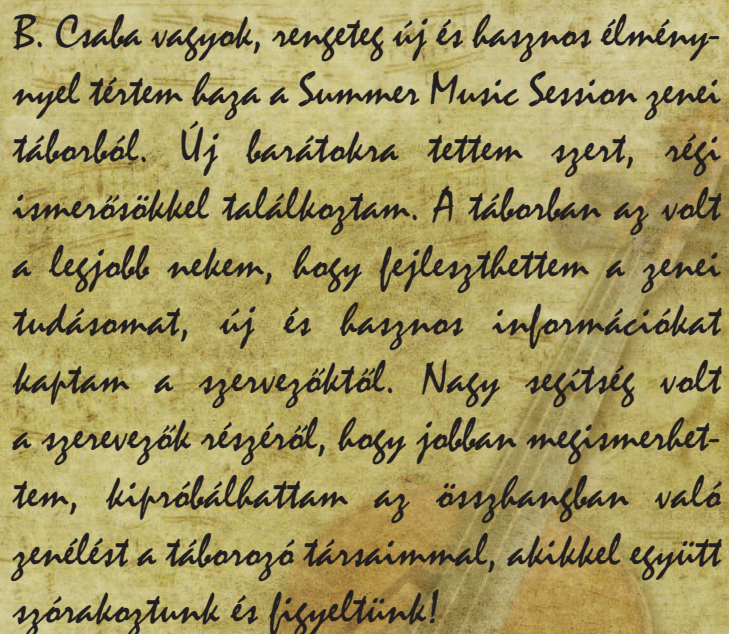 B. Csaba vagyok, rengeteg új és hasznos élmény-
nyel tértem haza a Summer Music Session zenei
táborból. Új barátokra tettem szert, régi
ismerősökkel találkoztam. A táborban az volt
a legjobb nekem, hogy fejleszthettem a zenei
tudásomat, új és hasznos információkat
kaptam a szervezőktől. Nagy segítség volt
a szerevezők részéről, hogy jobban megismerhet-
tem, kipróbálhattam az összhangban való
zenélést a táborozó társaimmal, akikkel együtt
szórakoztunk és figyeltünk!